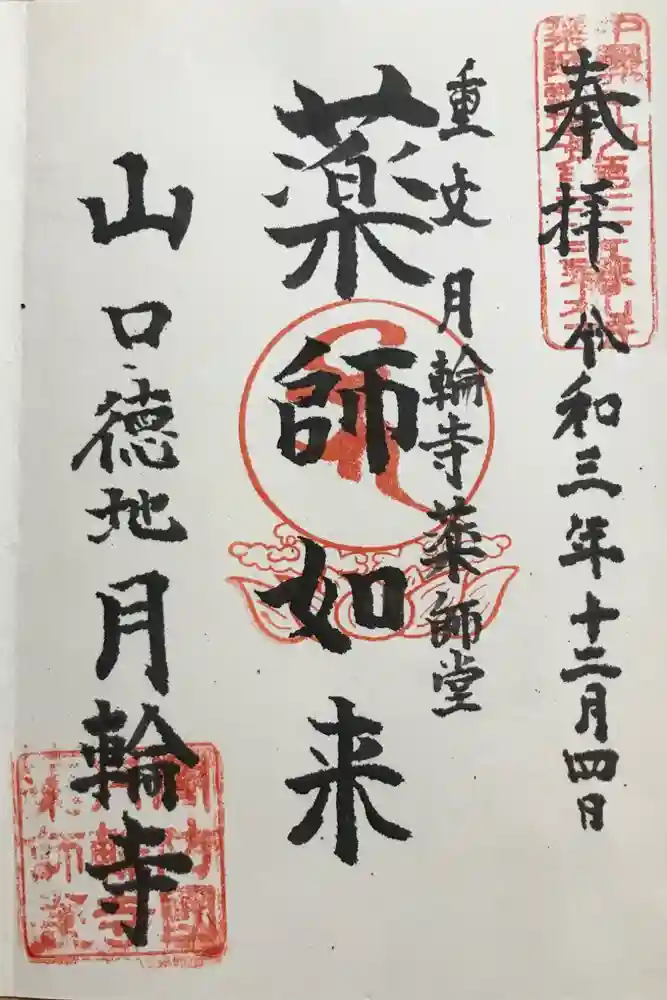 奉拝 令和三年十二月四日
重文 月輪寺薬師堂
薬師如来
山口徳地月輪寺